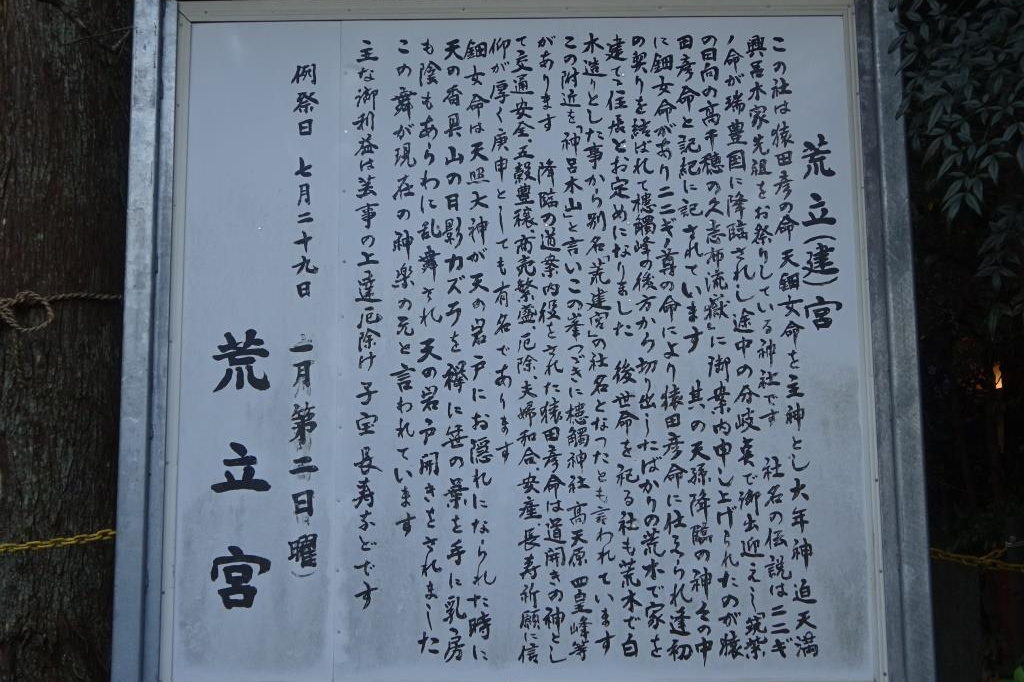 荒立(建)宮
この社は猿田彦の命天鈿女命を主神とし大年神迫天満
興呂木家先祖をお祭りしている神社です 社名の伝説はニニギ
ノ命が瑞豊国に降臨されし途中の分岐点で御出迎えし筑紫
の日向の高千穂の久志布流嶽」に御案内申し上げられたのが猿
田彦命と記紀に記されています 其の天孫降臨の神々の中
に鈿女命がありニニギノ尊の命により猿田彦命に仕えられ逢初
の契りを結ばれて槵觸峰の後方から切り出したばかりの荒木で家を
建て住居とお定めになりました 後世命を祀る社も荒木で白
木造りとした事から別名「荒建宮」の社名となったとも言われています
この附近を「神呂木山」と言いこの峯つづきに槵觸神社 高天原 四皇峰等
があります 降臨の道案内役をされた猿田彦命は道開きの神とし
て交通安全五穀豊穣、商売繁盛、厄除夫婦和合安産、長寿祈願に信
仰が厚く庚申としても有名であります
鈿女命は天照大神が天の岩戸にお隠れになられた時に
天の香具山の日影カズラを襷に笹の葉を手に乳房
も陰もあらわに乱舞され 天の岩戸開きをされました
この舞が現在の神楽の元と言われています
主な御利益は芸事の上達厄除け子宝長寿などです
例祭日 七月二十九日 一月第二日曜)
荒立宮